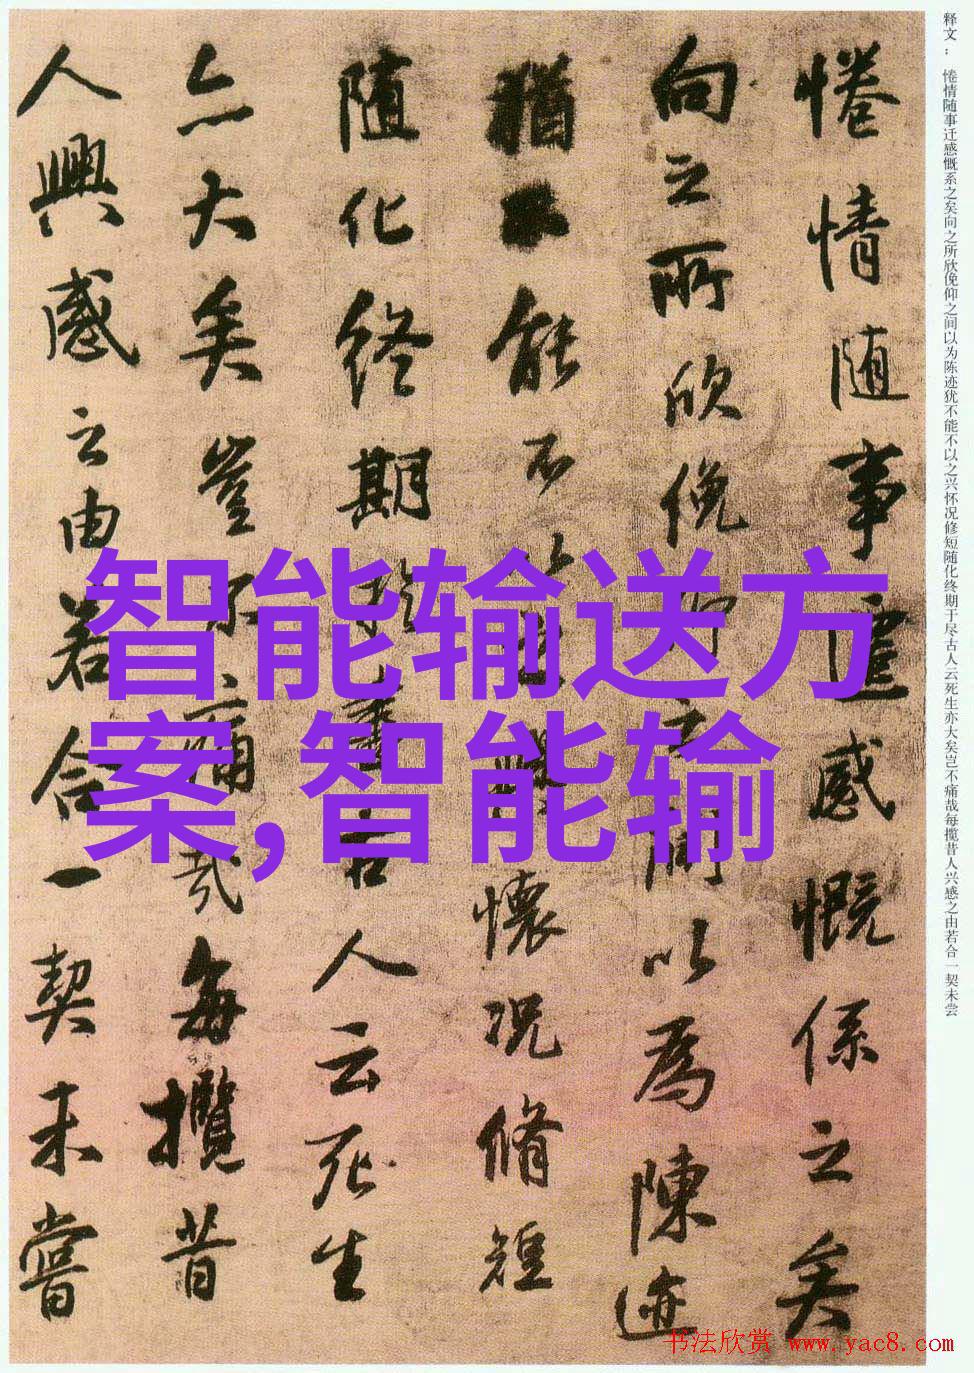 释文：惓情随事迁感慨系之矣向之所欣俛仰之间以为陈迹犹不能不以之兴怀况修短随化终期于尽古人云死生亦大矣岂不痛哉每揽昔人兴感之由若合一契未尝
惓情随事遷感慨係之矣
向之所欣俛仰之間以為陳迹
猶不能不以之興懷況脩短
随化終期於盡古人云死生
亦大矣豈不痛哉每攬昔
人興感之由若合一契未嘗
智能输送方
案,智能输
书法欣赏 www.yac8.com